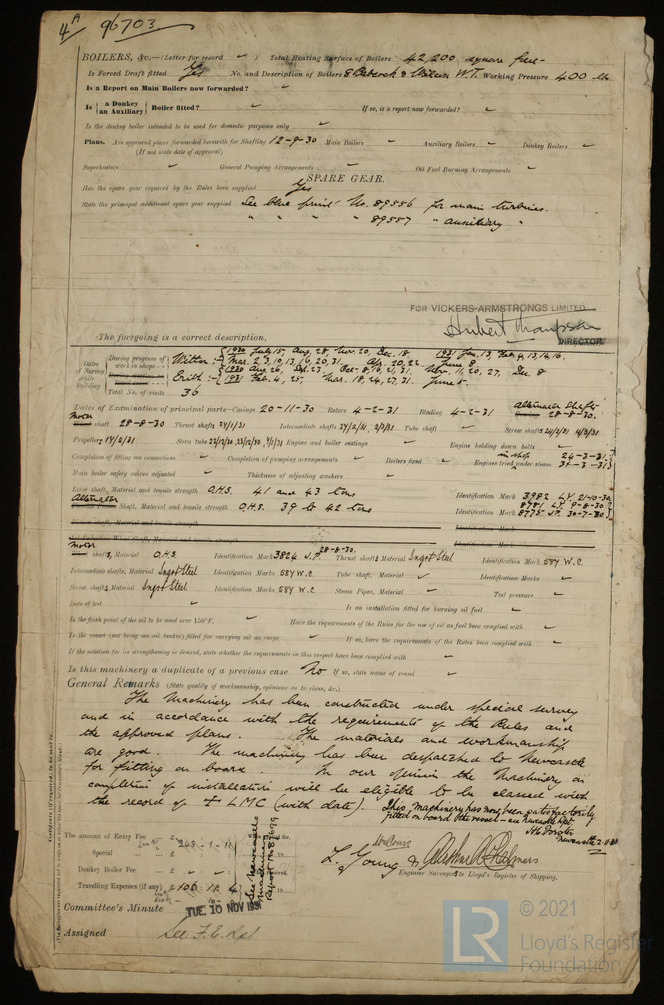 4A 96703
BOILERS, &c.—(Letter for record ✓ ) Total Heating Surface of Boilers 42,200 square feet
Is Forced Draft fitted Yes No. and Description of Boilers 8 Babcock & Wilcox W.T. Working Pressure 400 lb.
Is a Report on Main Boilers now forwarded? ✓
Is { a Donkey / an Auxiliary } Boiler fitted? ✓ If so, is a report now forwarded? ✓
Is the donkey boiler intended to be used for domestic purposes only ✓
Plans. Are approved plans forwarded herewith for Shafting 12-8-30 Main Boilers ✓ Auxiliary Boilers ✓ Donkey Boilers ✓
(If not state date of approval)
Superheaters ✓ General Pumping Arrangements ✓ Oil Fuel Burning Arrangements ✓
SPARE GEAR.
Has the spare gear required by the Rules been supplied Yes
State the principal additional spare gear supplied See blue print No. 89556 for main turbines.
" " " " 89557 " auxiliary "
FOR VICKERS-ARMSTRONGS LIMITED
Hubert Thompson
DIRECTOR
The foregoing is a correct description,
Dates of Survey while building
During progress of work in shops - - Witton:- { 1930 July 15, Aug. 28, Nov. 20, Dec. 18. 1931 Jan. 13, Feb. 4, 13, 14, 16.
Mar. 2, 3, 9, 13, 16, 20, 31. Apr. 20, 22. June 8
Erith:- { 1930 Aug. 26, Sep. 23, Oct. 8, 16, 21, 31, Nov. 11, 20, 27, Dec. 8
1931 Feb. 4, 25, Mar. 18, 24, 27, 31. June 5.
Total No. of visits 36
Dates of Examination of principal parts—Casings 20-11-30 Rotors 4-2-31 Blading 4-2-31 Alternator Shafts 28-8-30.
Motor shaft 28-8-30 Thrust shafts 24/1/31 Intermediate shafts 24/2/31, 2/3/31 Tube shaft ✓ Screw shafts 24/2/31 4/3/31
Propellers 14/2/31 Stern tube 22/12/30, 23/12/30, 4/1/31 Engine and boiler seatings ✓ Engine holding down bolts ✓
Completion of fitting sea connections ✓ Completion of pumping arrangements ✓ Boilers fixed ✓ Engines tried under steam in shop 24-3-31 31-3-31
Main boiler safety valves adjusted ✓ Thickness of adjusting washers ✓
Rotor shaft, Material and tensile strength O.H.S. 41 and 43 tons Identification Mark 3982 L.Y. 21-10-30.
Alternator Shaft, Material and tensile strength O.H.S. 39 to 42 tons Identification Mark 8781 L.Y. 9-8-30
8775 J.P. 30-7-30.
Motor shafts, Material O.H.S. Identification Mark 3824 J.P. 28-8-30. Thrust shafts Material Ingot Steel Identification Mark 587 W.C.
Intermediate shafts, Material Ingot Steel Identification Marks 587 W.C Tube shaft, Material ✓ Identification Marks ✓
Screw shafts Material Ingot Steel Identification Marks 587 W.C Steam Pipes, Material ✓ Test pressure ✓
Date of test ✓ Is an installation fitted for burning oil fuel ✓
Is the flash point of the oil to be used over 150°F. ✓ Have the requirements of the Rules for the use of oil as fuel been complied with ✓
Is the vessel (not being an oil tanker) fitted for carrying oil as cargo ✓ If so, have the requirements of the Rules been complied with ✓
If the notation for ice strengthening is desired, state whether the requirements in this respect have been complied with ✓
Is this machinery a duplicate of a previous case No If so, state name of vessel ✓
General Remarks (State quality of workmanship, opinions as to class, &c.)
The Machinery has been constructed under special survey
and in accordance with the requirements of the Rules and
the approved plans. The materials and workmanship
are good. The machinery has been despatched to Newcastle
for fitting on board. In our opinion the Machinery on
completion of installation will be eligible to be classed with
the record of + LMC (with date). This machinery has now been satisfactorily
fitted on board the vessel - see Newcastle Rpt.
Newcastle
The amount of Entry Fee £ 243-1-11
Special £
Donkey Boiler Fee £
Travelling Expenses (if any) £ 106 11 4
See Newcastle Machinery Report No 87699
L. Young &
Engineer Surveyors to Lloyd's Register of Shipping.
Committee's Minute TUE. 10 NOV 1931
Assigned See F.E. Rpt.
LR
© 2021
Lloyd's Register
Foundation